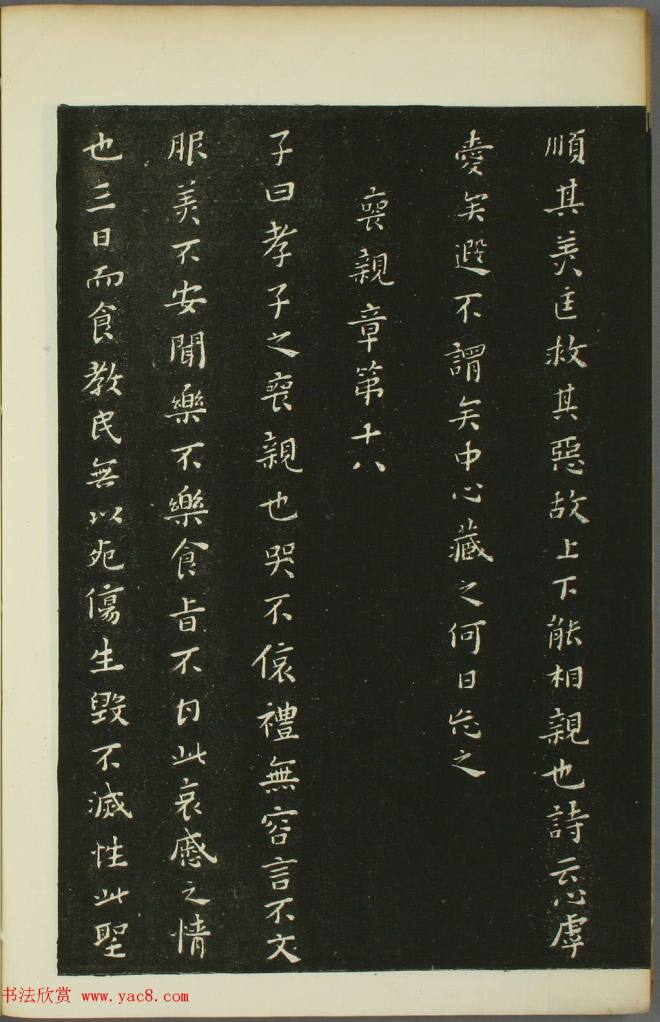 順其美匡救其惡故上下能相親也詩云心虖
愛矣遐不謂矣中心藏之何日忘之
喪親章第十八
子曰孝子之喪親也哭不偯禮無容言不文
服美不安聞樂不樂食旨不甘此哀慼之情
也三日而食教民無以死傷生毀不滅性此聖
书法欣赏 www.yac8.com